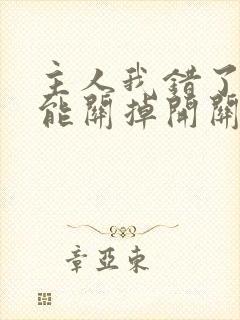 主人我錯了
能關掉開關
章亞東